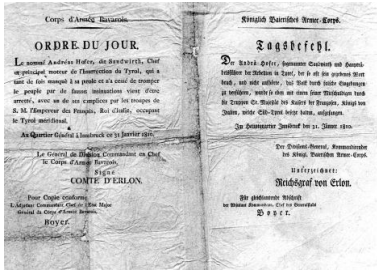 Corps d'Armée Bavarois.
ORDRE DU JOUR.
Le nommé Andréas Hofer, dit Sandwirth, Chef
et principal moteur de l'Insurrection du Tyrol, qui a
tant de fois manqué à sa parole et n'a cessé de tromper
le peuple par de fausses insinuations vient d'être
arreté, avec un de ses complices par les troupes de
S. M. l'Empereur des Français, Roi d'Italie, occupant
le Tyrol méridional.
Au Quartier Général à Innsbruck ce 31 Janvier 1810.
Le General de Division Commandant en Chef
le Corps d'Armée Bavarois,
Signé
COMTE D'ERLON.
Pour Copie conforme
L'Adjutant Commandant, Chef de l'Etat Major
Général du Corps d'Armée Bavarois,
Boyer.
Königlich Baierisches Armee-Corps.
Tagsbefehl.
Der Andrä Hofer, sogenannter Sandwirth und Haupt
der Rebellion in Tyrol, der so oft sein gegebenes Wort
brach, und nicht aufhörte, das Volk durch falsche Eingebungen
zu verführen, wurde so eben mit einem seiner Mitschuldigen durch
die Truppen Sr. Majestät des Kaisers der Franzosen, Königs von
Italien, welche Süd-Tyrol besetzt halten, aufgefangen.
Im Hauptquartier Innsbruck den 31. Jänner 1810.
Der Divisions-General, Kommandirender
des Königl. Baierischen Armee-Corps.
Unterzeichnet:
Reichsgraf von Erlon.
Für gleichlautende Abschrift
der Adjutant Kommandant, Chef des Generalstabs
Boyer.